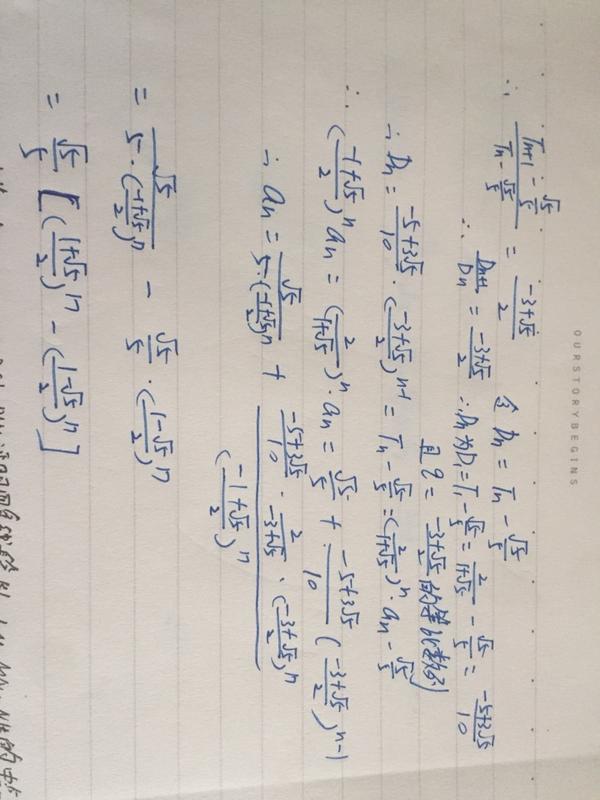 OURSTORYBEGINS
∴ (T_{n+1} - √5/5)/(T_n - √5/5) = (-3+√5)/2 令 D_n = T_n - √5/5
∴ D_{n+1}/D_n = (-3+√5)/2 ∴ D_n 为 D_1 = T_1 - √5/5 = 2/(1+√5) - √5/5 = (-5+3√5)/10
且 q = (-3+√5)/2 的等比数列
∴ D_n = (-5+3√5)/10 · ((-3+√5)/2)^{n-1} = T_n - √5/5 = (2/(1+√5))^n · a_n - √5/5
∴ ((-1+√5)/2)^n a_n = (2/(1+√5))^n · a_n = √5/5 + (-5+3√5)/10 ((-3+√5)/2)^{n-1}
∴ a_n = √5/(5·((-1+√5)/2)^n) + ((-5+3√5)/10 · 2/(-3+√5) · ((-3+√5)/2)^n)/((-1+√5)/2)^n
= √5/(5·((-1+√5)/2)^n) - √5/5 · ((1-√5)/2)^n
= √5/5 [((1+√5)/2)^n - ((1-√5)/2)^n]